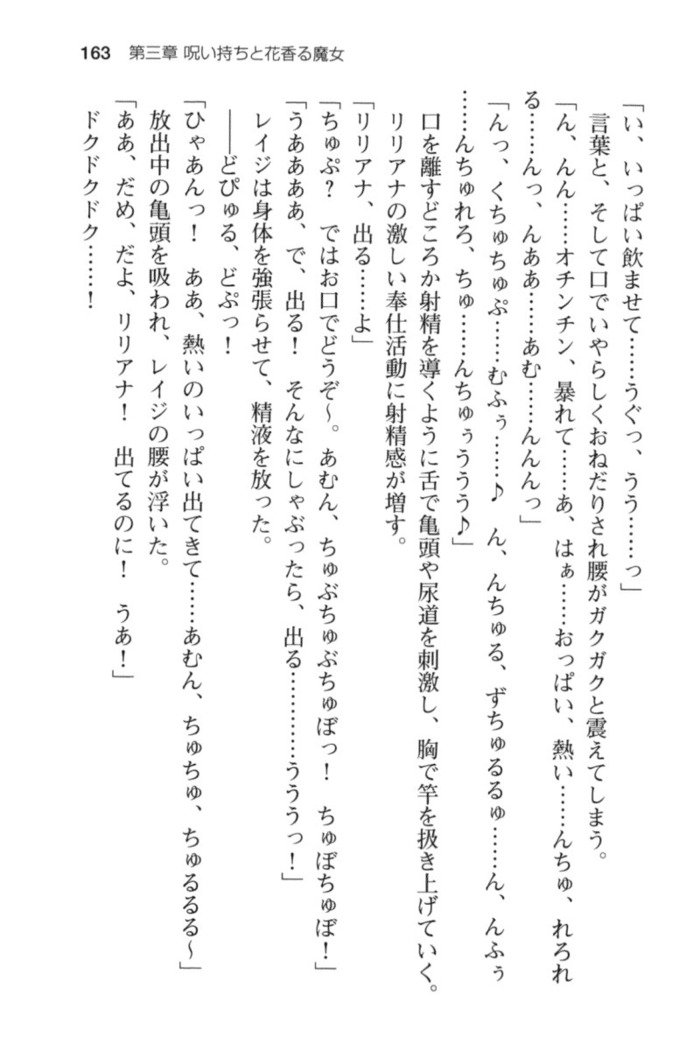 163 第三章 呪い持ちと花香る魔女
「い、いっぱい飲ませて……うぐっ、うう……っ」
言葉と、そして口でいやらしくおねだりされ腰がガクガクと震えてしまう。
「ん、んん……オチンチン、暴れて……あ、はぁ……おっぱい、熱い……んちゅ、れろれ
る……んっ、んああ……あむ……んんんっ」
「んっ、くちゅちゅぷ……むふぅ……♪ ん、んちゅる、ずちゅるるゅ……ん、んふぅ
……んちゅれろ、ちゅ……んちゅぅううう♪」
口を離すどころか射精を導くように舌で亀頭や尿道を刺激し、胸で竿を扱き上げていく。
リリアナの激しい奉仕活動に射精感が増す。
「リリアナ、出る……よ」
「ちゅぷ？ ではお口でどうぞ～。あむん、ちゅぶちゅぶちゅぼっ！ ちゅぼちゅぼ！」
「うああああ、で、出る！ そんなにしゃぶったら、出る…………うううっ！」
レイジは身体を強張らせて、精液を放った。
――どぴゅる、どぷっ！
「ひゃあんっ！ ああ、熱いのいっぱい出てきて……あむん、ちゅちゅ、ちゅるるる～」
放出中の亀頭を吸われ、レイジの腰が浮いた。
「ああ、だめ、だよ、リリアナ！ 出てるのに！ うあ！」
ドクドクドク……！